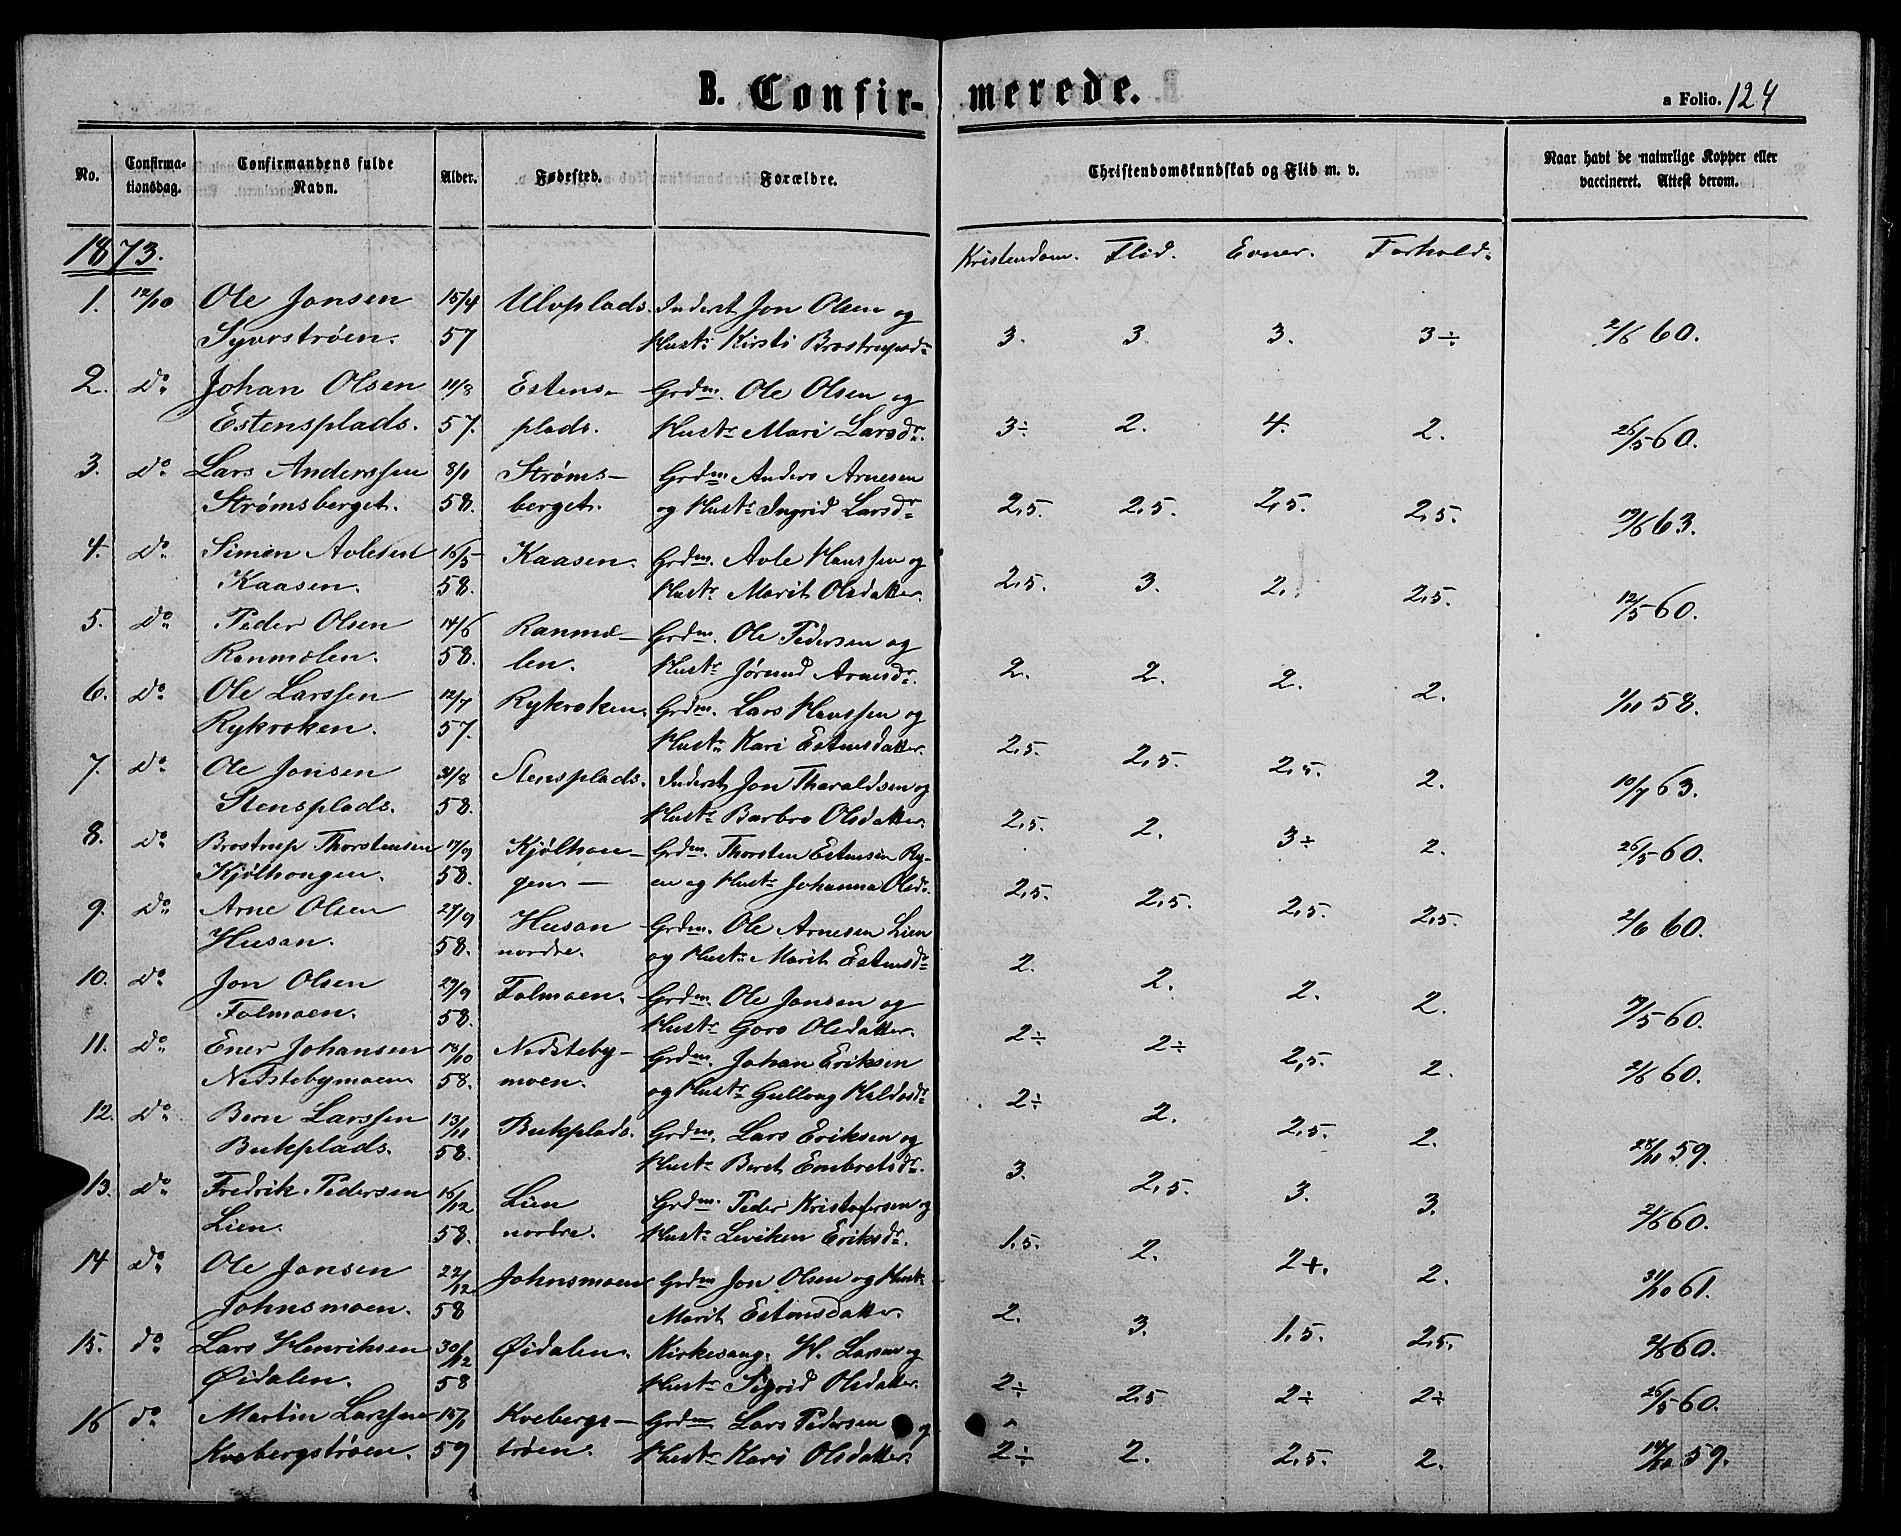 B. Confir- merede.
a Folio. 124
No. Confirma-tionsdag. Confirmandens fulde Navn. Alder. Fødested. Forældre. Christendomskundskab og Flid m. v. Naar havt de naturlige Kopper eller vaccineret. Attest derom.
1873. Kristendom. Flid. Evner. Forhold.
1. 12/10 Ole Jonsen 15/4 Ulvplads. Inderst Jon Olsen og
Syvvstrøen. 57 Hustr Kirsti Brostrupsdr 3. 3. 3. 3÷ 2/6 60.
2. Do Johan Olsen 11/8 Estens- Grdm. Ole Olsen og
Estensplads. 57. plads. Hustr Mari Larsdr. 3÷ 2. 4. 2. 26/5 60.
3. Do Lars Anderssen 8/1 Strøms- Grdm Anders Arnesen
Strømsberget. 58. berget. og Hustr Ingrid Larsdr 2,5. 2,5. 2,5. 2,5. 19/6 63.
4. Do Simen Avlesen 16/5 Kaasen. Grdm. Avle Hanssen og
Kaasen. 58. Hustr Marit Olsdatter. 2,5. 3. 2. 2,5. 12/5 60.
5. Do Peder Olsen 14/6 Ranmo- Grdm. Ole Pedersen og
Ranmolen. 58. len. Hustr Jørund Arnesdr. 2. 2. 2. 2. 1/11 58.
6. Do Ole Larssen 12/7 Rykroken. Grdm. Lars Hanssen og
Rykroken. 57. Hustr Kari Estensdatter. 2,5. 2,5. 2,5. 2. 10/7 63.
7. Do Ole Jonsen 31/8 Stensplads. Inderst Jon Tharaldsen og
Stensplads. 58. Hustr Barbro Olsdatter. 2,5. 2. 3÷ 2. 26/5 60.
8. Do Brostrup Thorstensen 17/9 Kjølhon- Grdm. Thorsten Estensen Ry-
Kjølhongen. 58. gen. — en og Hustr Johanna Olsdr. 2,5. 2,5. 2,5. 2,5. 2/6 60.
9. Do Arne Olsen 27/9 Husan Grdm. Ole Arnesen Lien
Husan. 58. nordre. og Hustr Marit Estensdr 2. 2. 2. 2. 60.
10. Do Jon Olsen 29/9 Folmoen. Grdm. Ole Jonsen og
Folmoen. 58. Hustr Goro Olsdatter. 2÷ 2÷ 2,5. 2. 2/6 60.
11. Do Ener Johansen 18/10 Nedsteby- Grdm. Johan Eriksen
Nedstebymoen 58. moen. og Hustr Gullaug Haldosdr 2÷ 2. 2,5. 2. 28/11 59.
12. Do Bern Larssen 13/11 Bukplads. Grdm. Lars Eriksen og
Bukplads. 58. Hustr Beret Embretsdr. 3. 2,5. 3. 3. 2/6 60.
13. Do Fredrik Pedersen 16/12 Lien Grdm. Peder Kristofersen og
Lien. 58. nordre. Hustr Leviken Eriksdr. 1,5. 2. 2+. 2. 31/10 61.
14 Do Ole Jonsen 22/12 Johnsmoen Grdm Jon Olsen og Hustr
Johnsmoen. 58 Marit Estensdatter. 2. 3. 1,5. 2,5. 2/6 60.
15. do Lars Henriksen 30/12 Øidalen. Kirkesang. H. Larsen og
Øidalen. 58 Hustr Sigrid Olsdatter. 2÷ 2,5 2÷ 2÷ 26/5 60.
16 do Martin Larssen 15/1 Kvebergs- Grdm Lars Pedersen og
Kvebergstrøen. 59 trøen. Hustr Kari Olsdatter. 2÷ 2. 2,5. 2. 14/10 59.